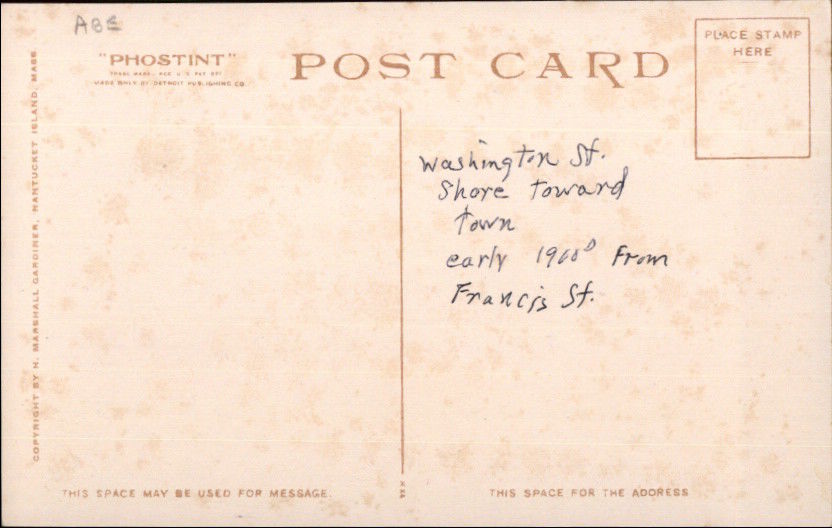 ABE
"PHOSTINT"
TRADE MARK. REG U.S. PAT OFF
MADE ONLY BY DETROIT PUBLISHING CO.
POST CARD
PLACE STAMP
HERE
COPYRIGHT BY H. MARSHALL GARDINER, NANTUCKET ISLAND, MASS.
Washington St.
Shore toward
town
early 1900s From
Francis St.
THIS SPACE MAY BE USED FOR MESSAGE.
THIS SPACE FOR THE ADDRESS